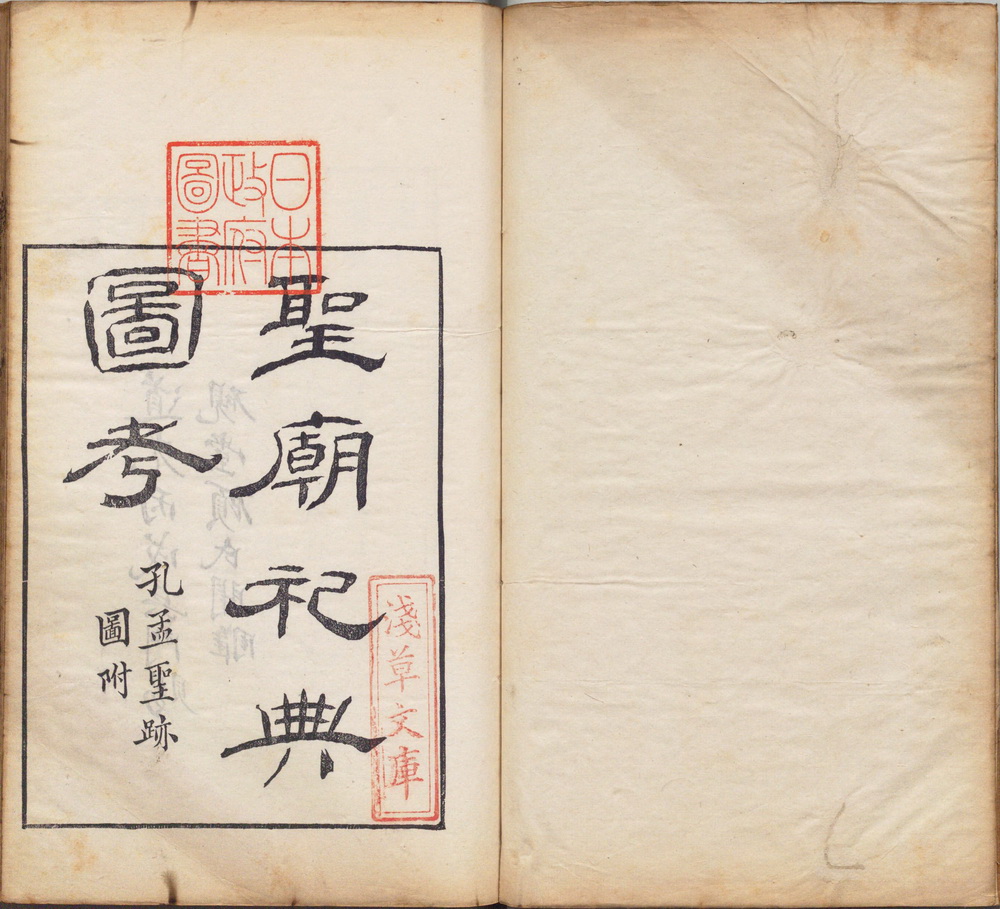 聖廟祀典
圖考
孔孟聖跡
圖附
日本
政府
圖書
淺草文庫